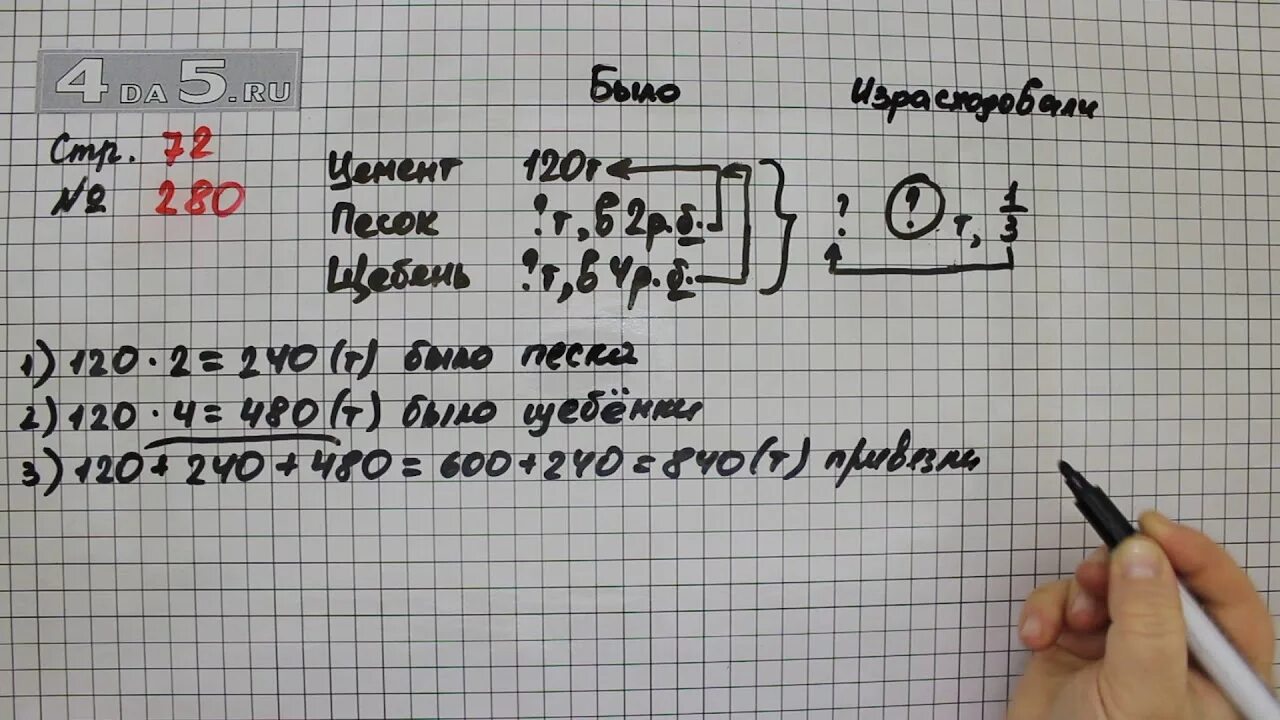 4 DA 5.RU
Было Израсходовали
Стр. 72
№ 280
Цемент 120т
Песок ?т, в 2р.б.
Щебень ?т, в 4р.б.
? ? т, 1/3
1) 120 · 2 = 240 (т) было песка
2) 120 · 4 = 480 (т) было щебёнки
3) 120 + 240 + 480 = 600 + 240 = 840 (т) привезли